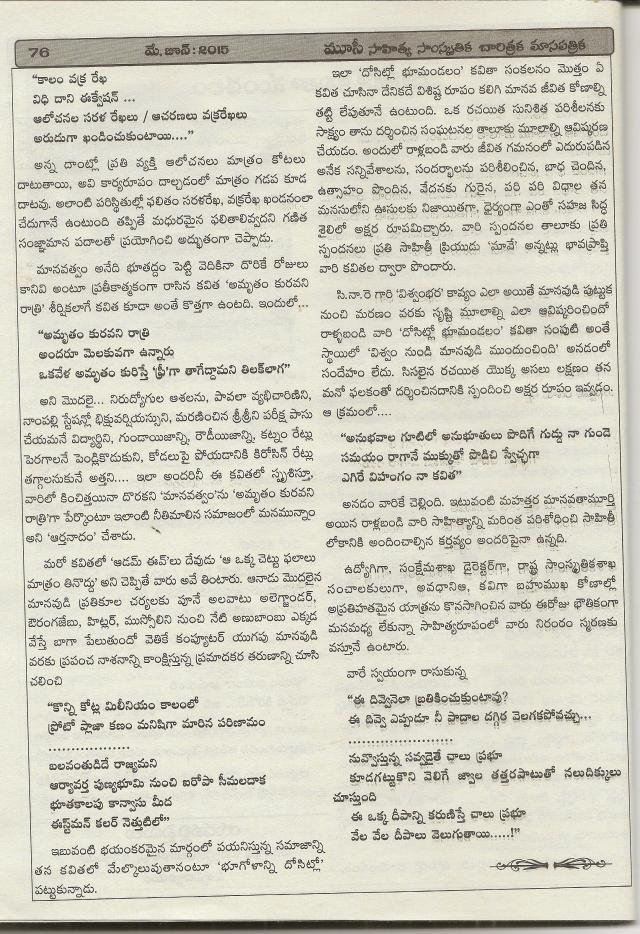 76 మే.జూన్ : 2015 మూసీ సాహిత్య సాంస్కృతిక చారిత్రక మాసపత్రిక
“కాలం వక్ర రేఖ
విధి దాని ఈక్వేషన్ ...
ఆలోచనల సరళ రేఖలు / ఆచరణలు వక్రరేఖలు
అరుదుగా ఖండించుకుంటాయి....”
అన్న దాంట్లో ప్రతి వ్యక్తి ఆలోచనలు మాత్రం కోటలు
దాటుతాయి, అవి కార్యరూపం దాల్చడంలో మాత్రం గడప కూడ
దాటవు. అలాంటి పరిస్థితుల్లో ఫలితం సరళరేఖ, వక్రరేఖ ఖండనంలా
చేదుగానే ఉంటుంది తప్పితే మధురమైన ఫలితాలివ్వదని గణిత
సంజ్ఞామాన పదాలతో ప్రయోగించి అద్భుతంగా చెప్పాడు.
మానవత్వం అనేది భూతద్దం పెట్టి వెదికినా దొరికే రోజులు
కానివి అంటూ ప్రతీకాత్మకంగా రాసిన కవిత ‘అమృతం కురవని
రాత్రి’ శీర్షికలాగే కవిత కూడా అంతే కొత్తగా ఉంటది. ఇందులో...
“అమృతం కురవని రాత్రి
అందరూ మెలకువగా ఉన్నారు
ఒకవేళ అమృతం కురిస్తే ‘ఫ్రీ’గా తాగేద్దామని తిలక్‌లాగ”
అని మొదలై... నిరుద్యోగుల ఆశలను, పావలా వ్యభిచారిణిని,
నాంపల్లి స్టేషన్లో భిక్షువర్షియస్సుని, మరణించిన శ్రీశ్రీని పరీక్ష పాసు
చేయమనే విద్యార్థిని, గుండాయిజాన్ని, రౌడీయిజాన్ని, కట్నం రేట్లు
పెరగాలనే పెండ్లికొడుకుని, కోడలుపై పోయడానికి కిరోసిన్ రేట్లు
తగ్గాలనుకునే అత్తని.... ఇలా అందరినీ ఈ కవితలో స్పృశిస్తూ,
వారిలో కించిత్తయినా దొరకని ‘మానవత్వం’ను ‘అమృతం కురవని
రాత్రి’గా పేర్కొంటూ ఇలాంటి నీతిమాలిన సమాజంలో మనమున్నాం
అని ‘ఆర్తనాదం’ చేశాడు.
మరో కవితలో ‘ఆడమ్ ఈవ్’లు దేవుడు ‘ఆ ఒక్క చెట్టు ఫలాలు
మాత్రం తినొద్దు’ అని చెప్పితే వారు అవే తింటారు. ఆనాడు మొదలైన
మానవుడి ప్రతికూల చర్యలకు పూనే అలవాటు అలెగ్జాండర్,
ఔరంగజేబు, హిట్లర్, ముస్సోలిని నుంచి నేటి అణుబాంబు ఎక్కడ
వేస్తే బాగా పేలుతుందో వెతికే కంప్యూటర్ యుగపు మానవుడి
వరకు ప్రపంచ నాశనాన్ని కాంక్షిస్తున్న ప్రమాదకర తరుణాన్ని చూసి
చలించి
“కొన్ని కోట్ల మిలీనియం కాలంలో
ప్రోటో ప్లాజా కణం మనిషిగా మారిన పరిణామం
..................
బలవంతుడిదే రాజ్యమని
ఆర్యావర్త పుణ్యభూమి నుంచి ఐరోపా సీమలదాక
భూతకాలపు కాన్వాసు మీద
ఈస్ట్‌మన్ కలర్ నెత్తుటిలో”
ఇటువంటి భయంకరమైన మార్గంలో పయనిస్తున్న సమాజాన్ని
తన కవితలో మేల్కొలుపుతానంటూ ‘భూగోళాన్ని దోసిట్లో’
పట్టుకున్నాడు.
ఇలా ‘దోసిట్లో భూమండలం’ కవితా సంకలనం మొత్తం ఏ
కవిత చూసినా దేనికదే విశిష్ట రూపం కలిగి మానవ జీవిత కోణాల్ని
తట్టి లేపుతూనే ఉంటుంది. ఒక రచయిత సునిశిత పరిశీలనకు
సాక్ష్యం తాను దర్శించిన సంఘటనల తాలూకు మూలాల్ని ఆవిష్కరణ
చేయడం. అందులో రాళ్లబండి వారు జీవిత గమనంలో ఎదురుపడిన
అనేక సన్నివేశాలను, సందర్భాలను పరిశీలించిన, బాధ చెందిన,
ఉత్సాహం పొందిన, వేదనకు గురైన, పరి పరి విధాల తన
మనసులోని ఊసులకు నిజాయితగా, ధైర్యంగా ఎంతో సహజ సిద్ధ
శైలిలో అక్షర రూపమిచ్చారు. వారి స్పందనల తాలూకు ప్రతి
స్పందనలు ప్రతి సాహితీ ప్రియుడు ‘మావే’ అన్నట్లు భావప్రాప్తి
వారి కవితల ద్వారా పొందారు.
సి.నా.రె గారి ‘విశ్వంభర’ కావ్యం ఎలా అయితే మానవుడి పుట్టుక
నుంచి మరణం వరకు సృష్టి మూలాల్ని ఎలా ఆవిష్కరించిందో
రాళ్ళబండి వారి ‘దోసిట్లో భూమండలం’ కవితా సంపుటి అంతే
స్థాయిలో ‘విశ్వం నుండి మానవుడి ముందుంచింది’ అనడంలో
సందేహం లేదు. సిసలైన రచయిత యొక్క అసలు లక్షణం తన
మనో ఫలకంతో దర్శించినదానికి స్పందించి అక్షర రూపం ఇవ్వడం.
ఆ క్రమంలో....
“అనుభవాల గూటిలో అనుభూతులు పొదిగే గుడ్డు నా గుండె
సమయం రాగానే ముక్కుతో పొడిచి స్వేచ్ఛగా
ఎగిరే విహంగం నా కవిత”
అనడం వారికే చెల్లింది. ఇటువంటి మహత్తర మానవతామూర్తి
అయిన రాళ్లబండి వారి సాహిత్యాన్ని మరింత పరిశోధించి సాహితీ
లోకానికి అందించాల్సిన కర్తవ్యం అందరిపైనా ఉన్నది.
ఉద్యోగిగా, సంక్షేమశాఖ డైరెక్టర్‌గా, రాష్ట్ర సాంస్కృతికశాఖ
సంచాలకులుగా, అవధానిఆ, కవిగా బహుముఖ కోణాల్లో
అప్రతిహతమైన యాత్రను కొనసాగించిన వారు ఈరోజు భౌతికంగా
మనమధ్య లేకున్నా సాహిత్యరూపంలో వారు నిరంరం స్మరణకు
వస్తూనే ఉంటారు.
వారే స్వయంగా రాసుకున్న
“ఈ దివ్వెనెలా బ్రతికించుకుంటావు?
ఈ దివ్వె ఎప్పుడూ నీ పాదాల దగ్గిర వెలగకపోవచ్చు...
......................
నువ్వొస్తున్న సవ్వడైతే చాలు ప్రభూ
కూడగట్టుకొని వెలిగే జ్వాల తత్తరపాటుతో నలుదిక్కులు
చూస్తుంది
ఈ ఒక్క దీపాన్ని కరుణిస్తే చాలు ప్రభూ
వేల వేల దీపాలు వెలుగుతాయి.....!”